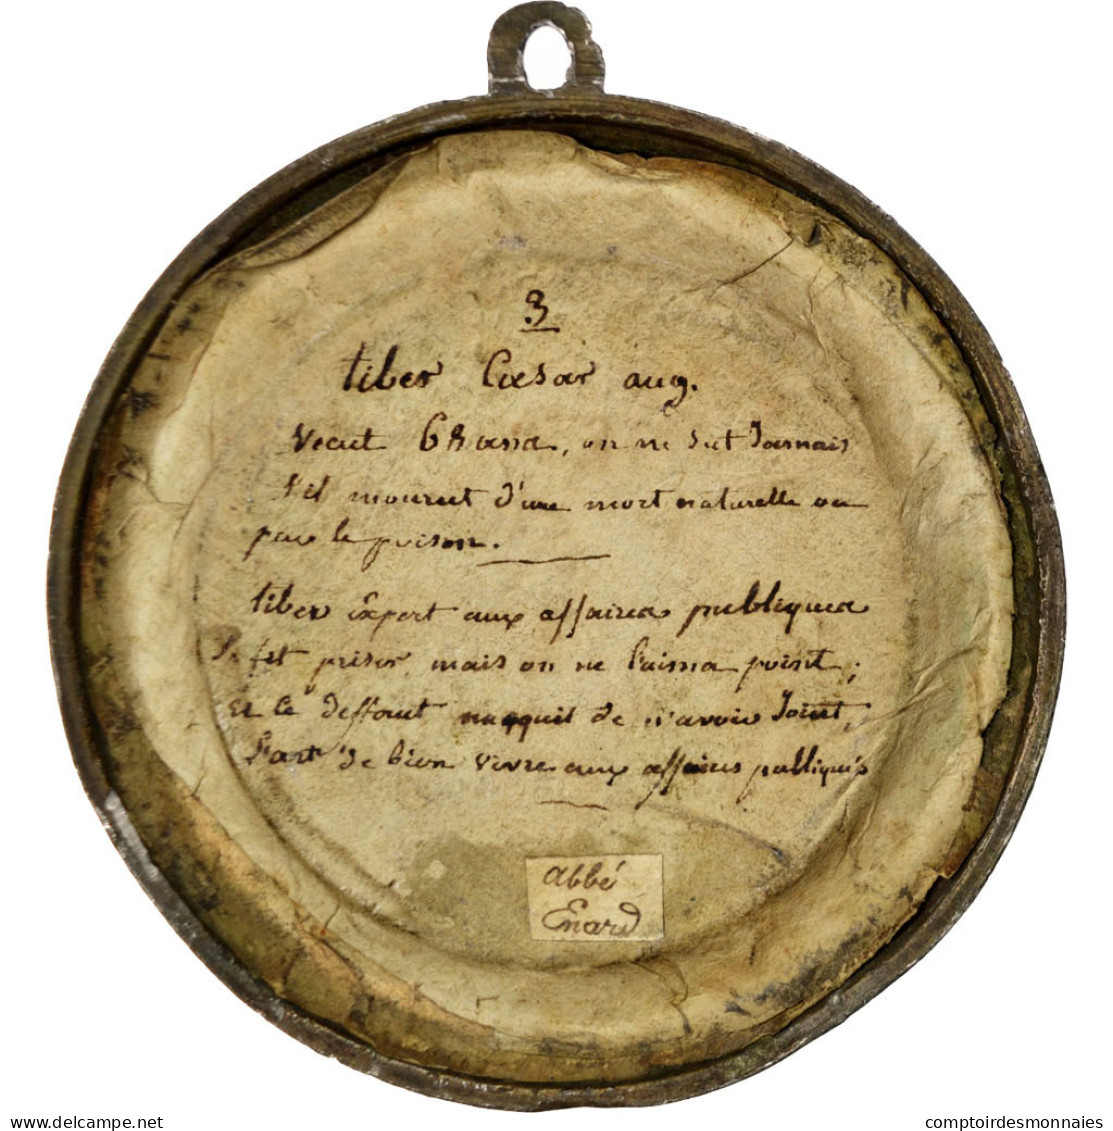 3
tiber Cæsar aug.
Vecut 68 ans, on ne sut Jamais
s'il mourut d'une mort naturelle ou
par le poison.
tiber Expert aux affaires publiques
Se fit priser, mais on ne l'aima point;
Et ce deffaut nacquit de n'avoir Joint,
L'art de bien vivre aux affaires publiques
abbé
Enard
comptoirdesmonnaies
delcampe.net